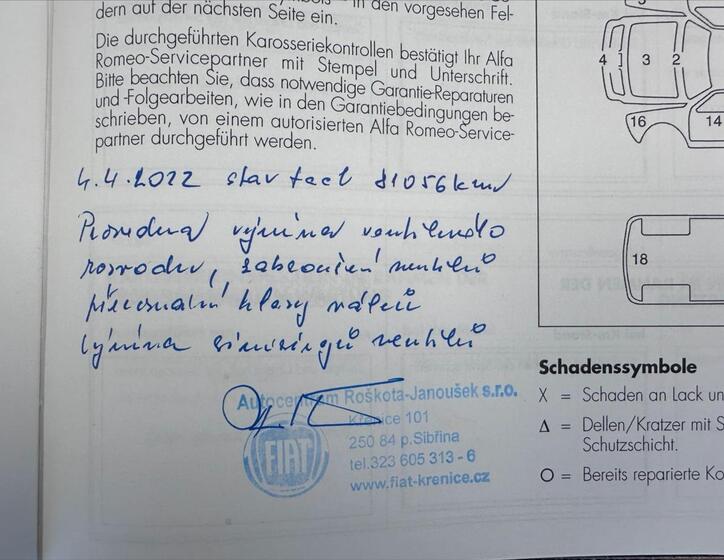 in den vorgesehen Fel-
dern auf der nächsten Seite ein.
Die durchgeführten Karosseriekontrollen bestätigt Ihr Alfa
Romeo-Servicepartner mit Stempel und Unterschrift.
Bitte beachten Sie, dass notwendige Garantie-Reparaturen
und -Folgearbeiten, wie in den Garantiebedingungen be-
schrieben, von einem autorisierten Alfa Romeo-Service-
partner durchgeführt werden.
4.4.2022 stav tach 81056km
Provedena výměna ventilového
rozvodu, zabroušení ventilů
přeměření hlavy válců
výměna simeringů ventilů
Autocentrum Roškota-Janoušek s.r.o.
Křenice 101
250 84 p.Sibřina
tel.323 605 313 - 6
www.fiat-krenice.cz
FIAT
4
3
2
16
14
18
Schadenssymbole
X = Schaden an Lack un
Δ = Dellen/Kratzer mit S
Schutzschicht.
O = Bereits reparierte Ko